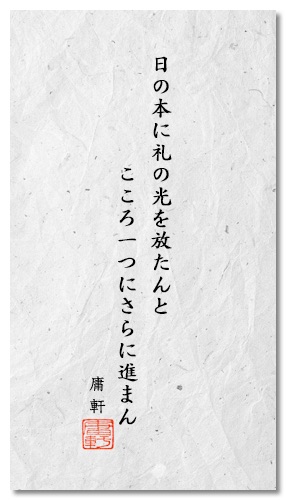 日の本に礼の光を放たんと
こころ一つにさらに進まん
庸軒
庸軒